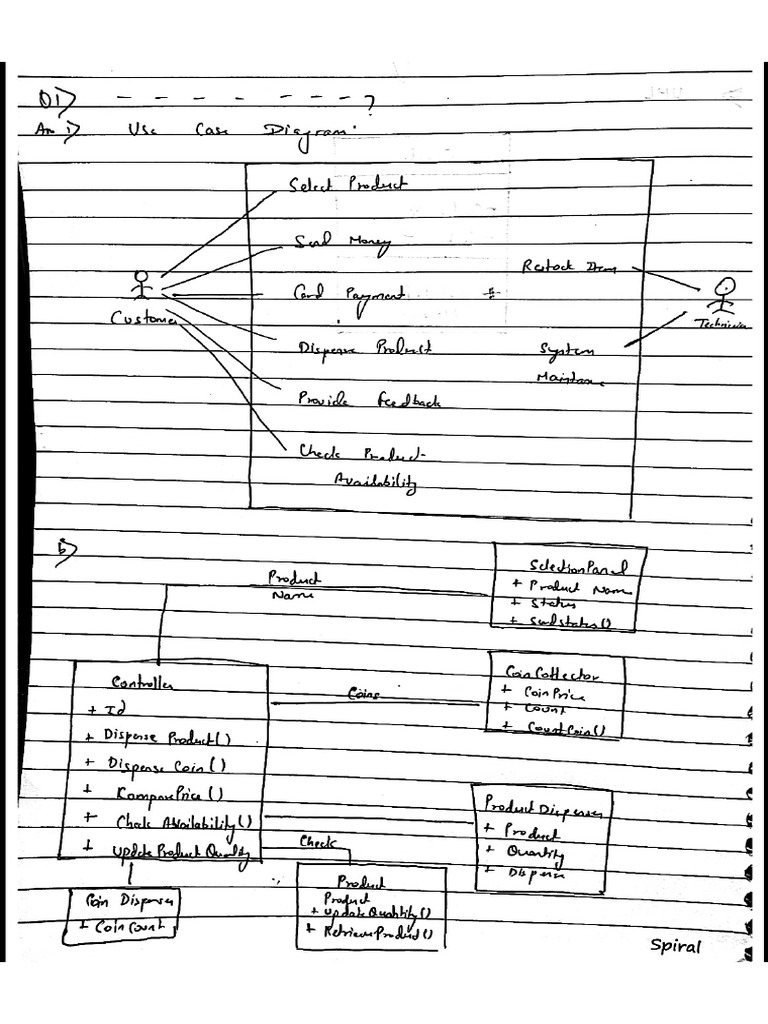 Q1) - - - - - - - ?
Ans 1) Use Case Diagram:
Select Product
Send Money
Card Payment
Dispense Product
Provide Feedback
Check Product
Availability
Restock Item
System
Maintanc
Customer
Technician
b)
Product
Name
SelectionPanel
+ Product Name
+ Status
+ SendStatus()
Controller
+ Id
+ Dispense Product()
+ Dispense Coin()
+ KomparePrice()
+ Check Availability()
+ Update Product Quality
Coins
CoinCollector
+ CoinPrice
+ Count
+ CountCoin()
ProductDispenser
+ Product
+ Quantity
+ Dispense
Check
Product
Product
+ UpdateQuantity()
+ RetrieveProduct()
Coin Dispenser
+ CoinCount
Spiral